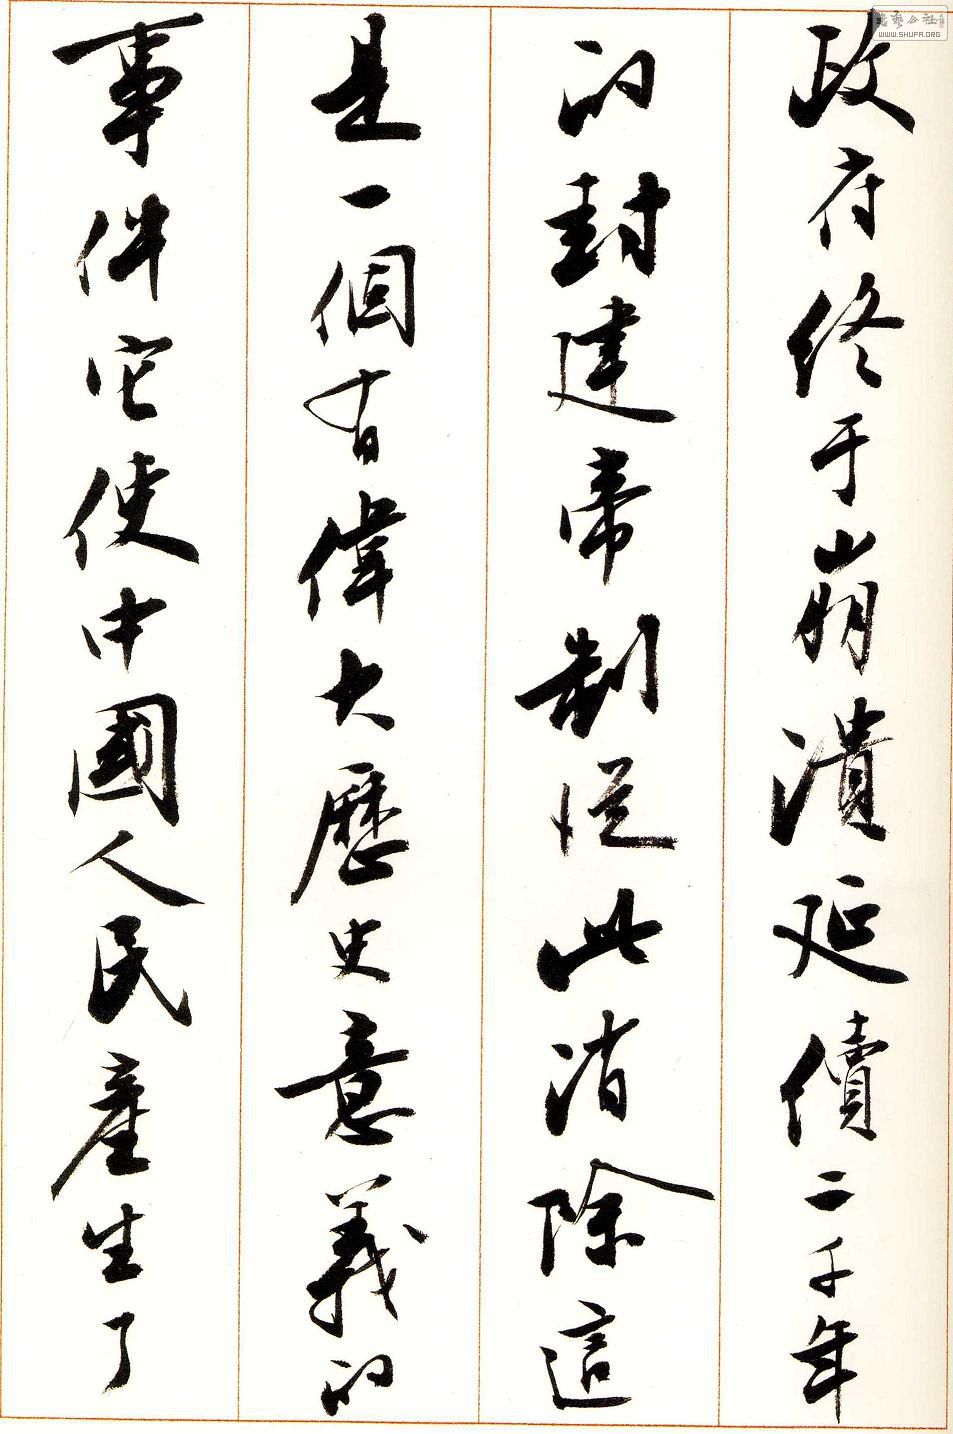 政府终于崩潰延續二千年
的封建帝制從此消除這
是一個有偉大歷史意義的
事件它使中國人民產生了
書藝公社
WWW.SHUFA.ORG